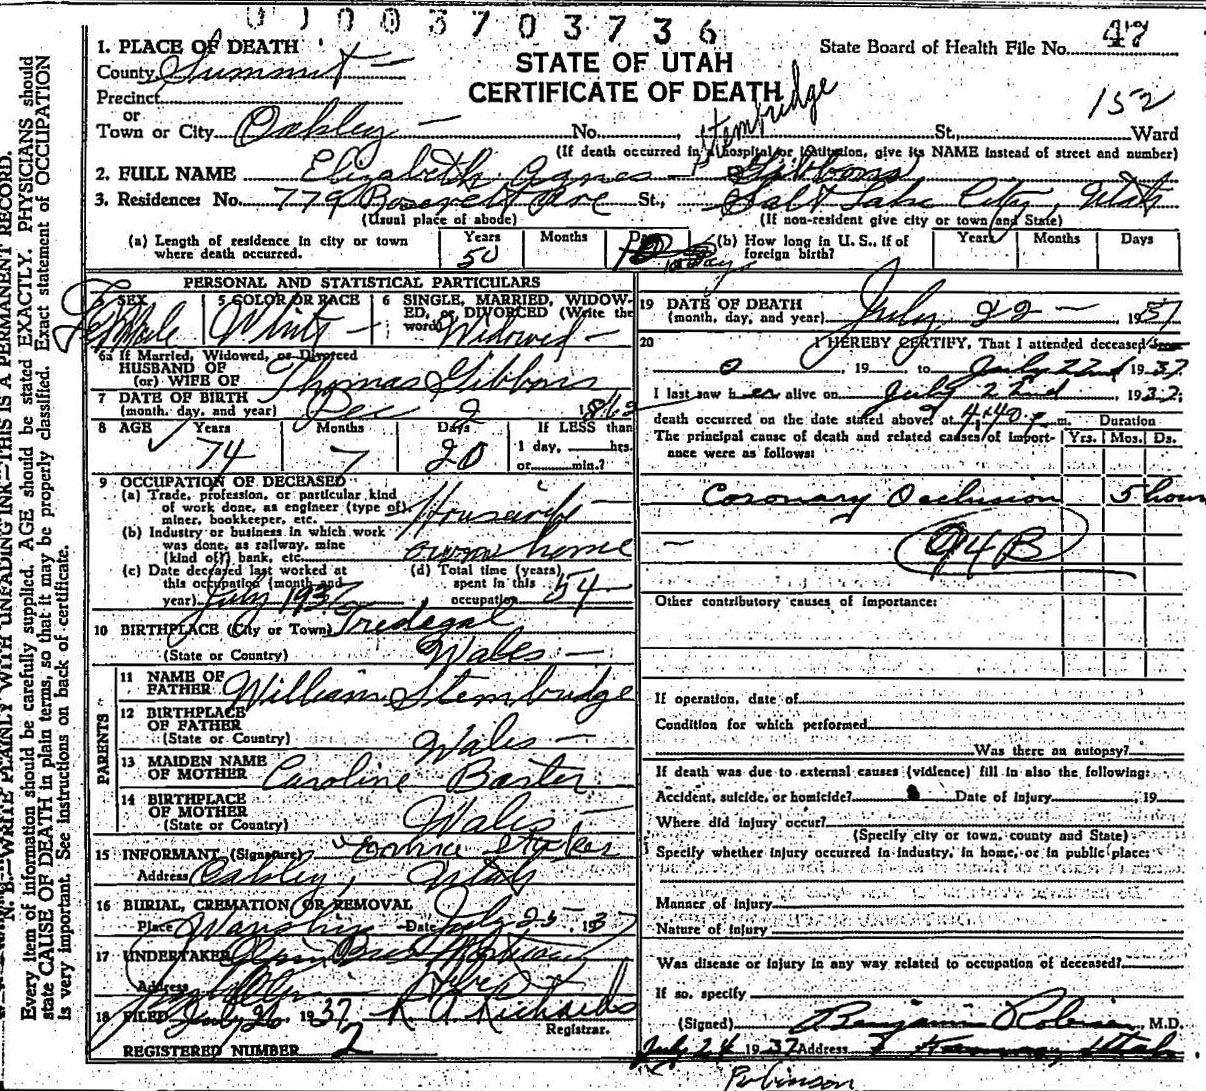 0 1 0 0 3 7 0 3 7 3 6
1. PLACE OF DEATH
State Board of Health File No. 47
County Summit
STATE OF UTAH
CERTIFICATE OF DEATH
Precinct
152
or
Town or City Oakley No. St., Ward
Stembridge
(If death occurred in a hospital or institution, give its NAME instead of street and number)
2. FULL NAME Elizabeth Agnes Gibbons
3. Residence: No. 779 Roosevelt Ave St., Salt Lake City, Utah
(Usual place of abode) (If non-resident give city or town and State)
(a) Length of residence in city or town where death occurred. Years 50 Months Days 10 days
(b) How long in U. S., if of foreign birth? Years Months Days
PERSONAL AND STATISTICAL PARTICULARS
SEX Female
5 COLOR OR RACE White
6 SINGLE, MARRIED, WIDOWED, or DIVORCED (Write the word) Widowed
6a If Married, Widowed, or Divorced
HUSBAND OF
(or) WIFE OF Thomas Gibbons
7 DATE OF BIRTH
(month, day, and year) Dec 2 1862
8 AGE Years 74 Months 7 Days 20
If LESS than
1 day, hrs.
or min.?
9 OCCUPATION OF DECEASED
(a) Trade, profession, or particular kind
of work done, as engineer (type of),
miner, bookkeeper, etc. Housewife
(b) Industry or business in which work
was done, as railway, mine
(kind of) bank, etc. own home
(c) Date deceased last worked at
this occupation (month and
year) July 1937
(d) Total time (years)
spent in this
occupation 54
10 BIRTHPLACE (City or Town) Tredegal
(State or Country) Wales
PARENTS
11 NAME OF
FATHER William Stembridge
12 BIRTHPLACE
OF FATHER
(State or Country) Wales
13 MAIDEN NAME
OF MOTHER Caroline Baxter
14 BIRTHPLACE
OF MOTHER
(State or Country) Wales
15 INFORMANT (Signature)
Address Oakley, Utah
16 BURIAL, CREMATION OR REMOVAL
Place Wanship Date July 25 1937
17 UNDERTAKER Olpin Bros Mortuary
Address
18 FILED July 26 1937 R. A. Richards
Registrar.
REGISTERED NUMBER 2
19 DATE OF DEATH
(month, day, and year) July 22 1937
20 I HEREBY CERTIFY, That I attended deceased from
0, 19 to July 22nd 1937
I last saw her alive on July 22nd, 1937;
death occurred on the date stated above, at 4:40 P m.
Duration
The principal cause of death and related causes of importance were as follows:
Yrs. Mos. Ds.
Coronary Occlusion 5 hours
94B
Other contributory causes of importance:
If operation, date of
Condition for which performed
Was there an autopsy?
If death was due to external causes (violence) fill in also the following:
Accident, suicide, or homicide? Date of injury , 19
Where did injury occur?
(Specify city or town, county and State)
Specify whether injury occurred in industry, in home, or in public place:
Manner of injury
Nature of injury
Was disease or injury in any way related to occupation of deceased?
If so, specify
(Signed) Benjamin Robison, M.D.
July 24 1937 Address Kamas, Utah
Robinson
N. B.—WRITE PLAINLY WITH UNFADING INK—THIS IS A PERMANENT RECORD.
Every item of information should be carefully supplied. AGE should be stated EXACTLY. PHYSICIANS should
state CAUSE OF DEATH in plain terms, so that it may be properly classified. Exact statement of OCCUPATION
is very important. See instructions on back of certificate.